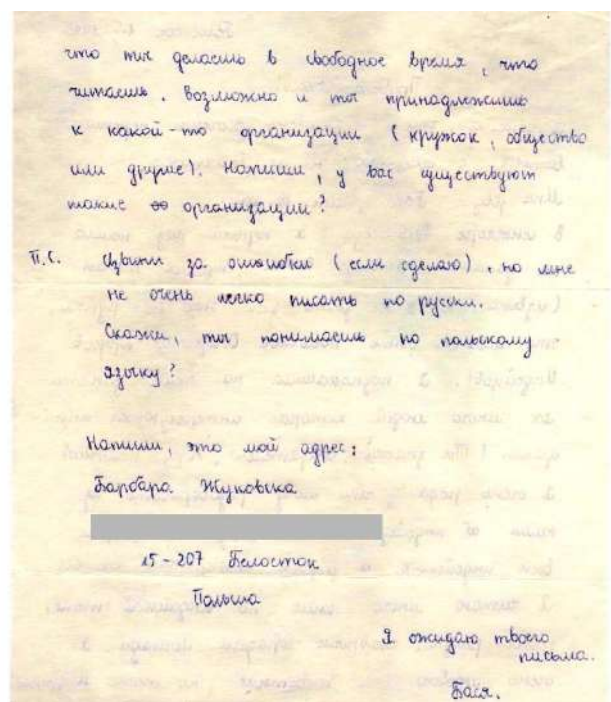 что ты делаешь в свободное время, что
читаешь. Возможно и ты принадлежишь
к какой-то организации (кружок, общество
или другие). Напиши, у вас существуют
такие организации?
П.С. Извини за ошибки (если сделаю), но мне
не очень легко писать по русски.
Скажи, ты понимаешь по польскому
языку?
Напиши, это мой адрес:
Барбара Жуковска
15-207 Белосток
Польша
Я ожидаю твоего
письма.
Бася.